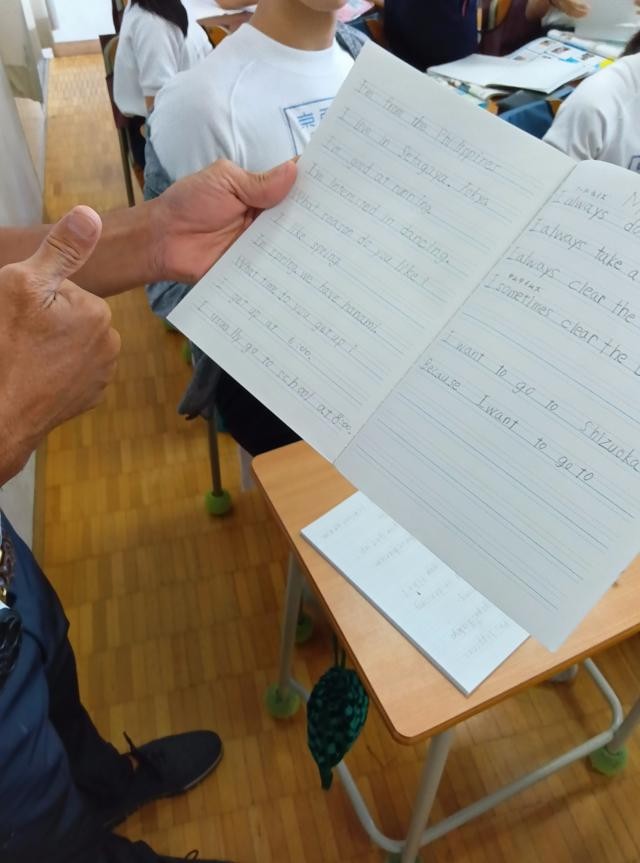 I'm from the Philippines
I live in Setagaya, Tokyo
I'm good at running
I'm interested in dancing.
What season do you like?
I like spring
In spring, we have hanami
What time do you get up?
get up at 6:00.
I usually go to school at 8:00.
I always
I always take a
I always clear the
I sometimes clear the
I want to go to Shizuoka
Because I want to go to